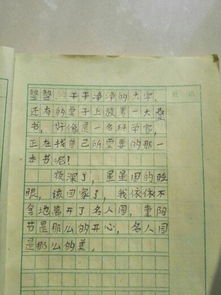 望望 干干净净的大学,
还有的垫子上放着一大叠
书,好像是一名科学官,
正在找自己所需要的那一
本书呢!
夜深了,星星困的眨
眼,该回家了,我依依不
舍地离开了名人园,重阳
节是那么的开心,名人园
是那么的美。